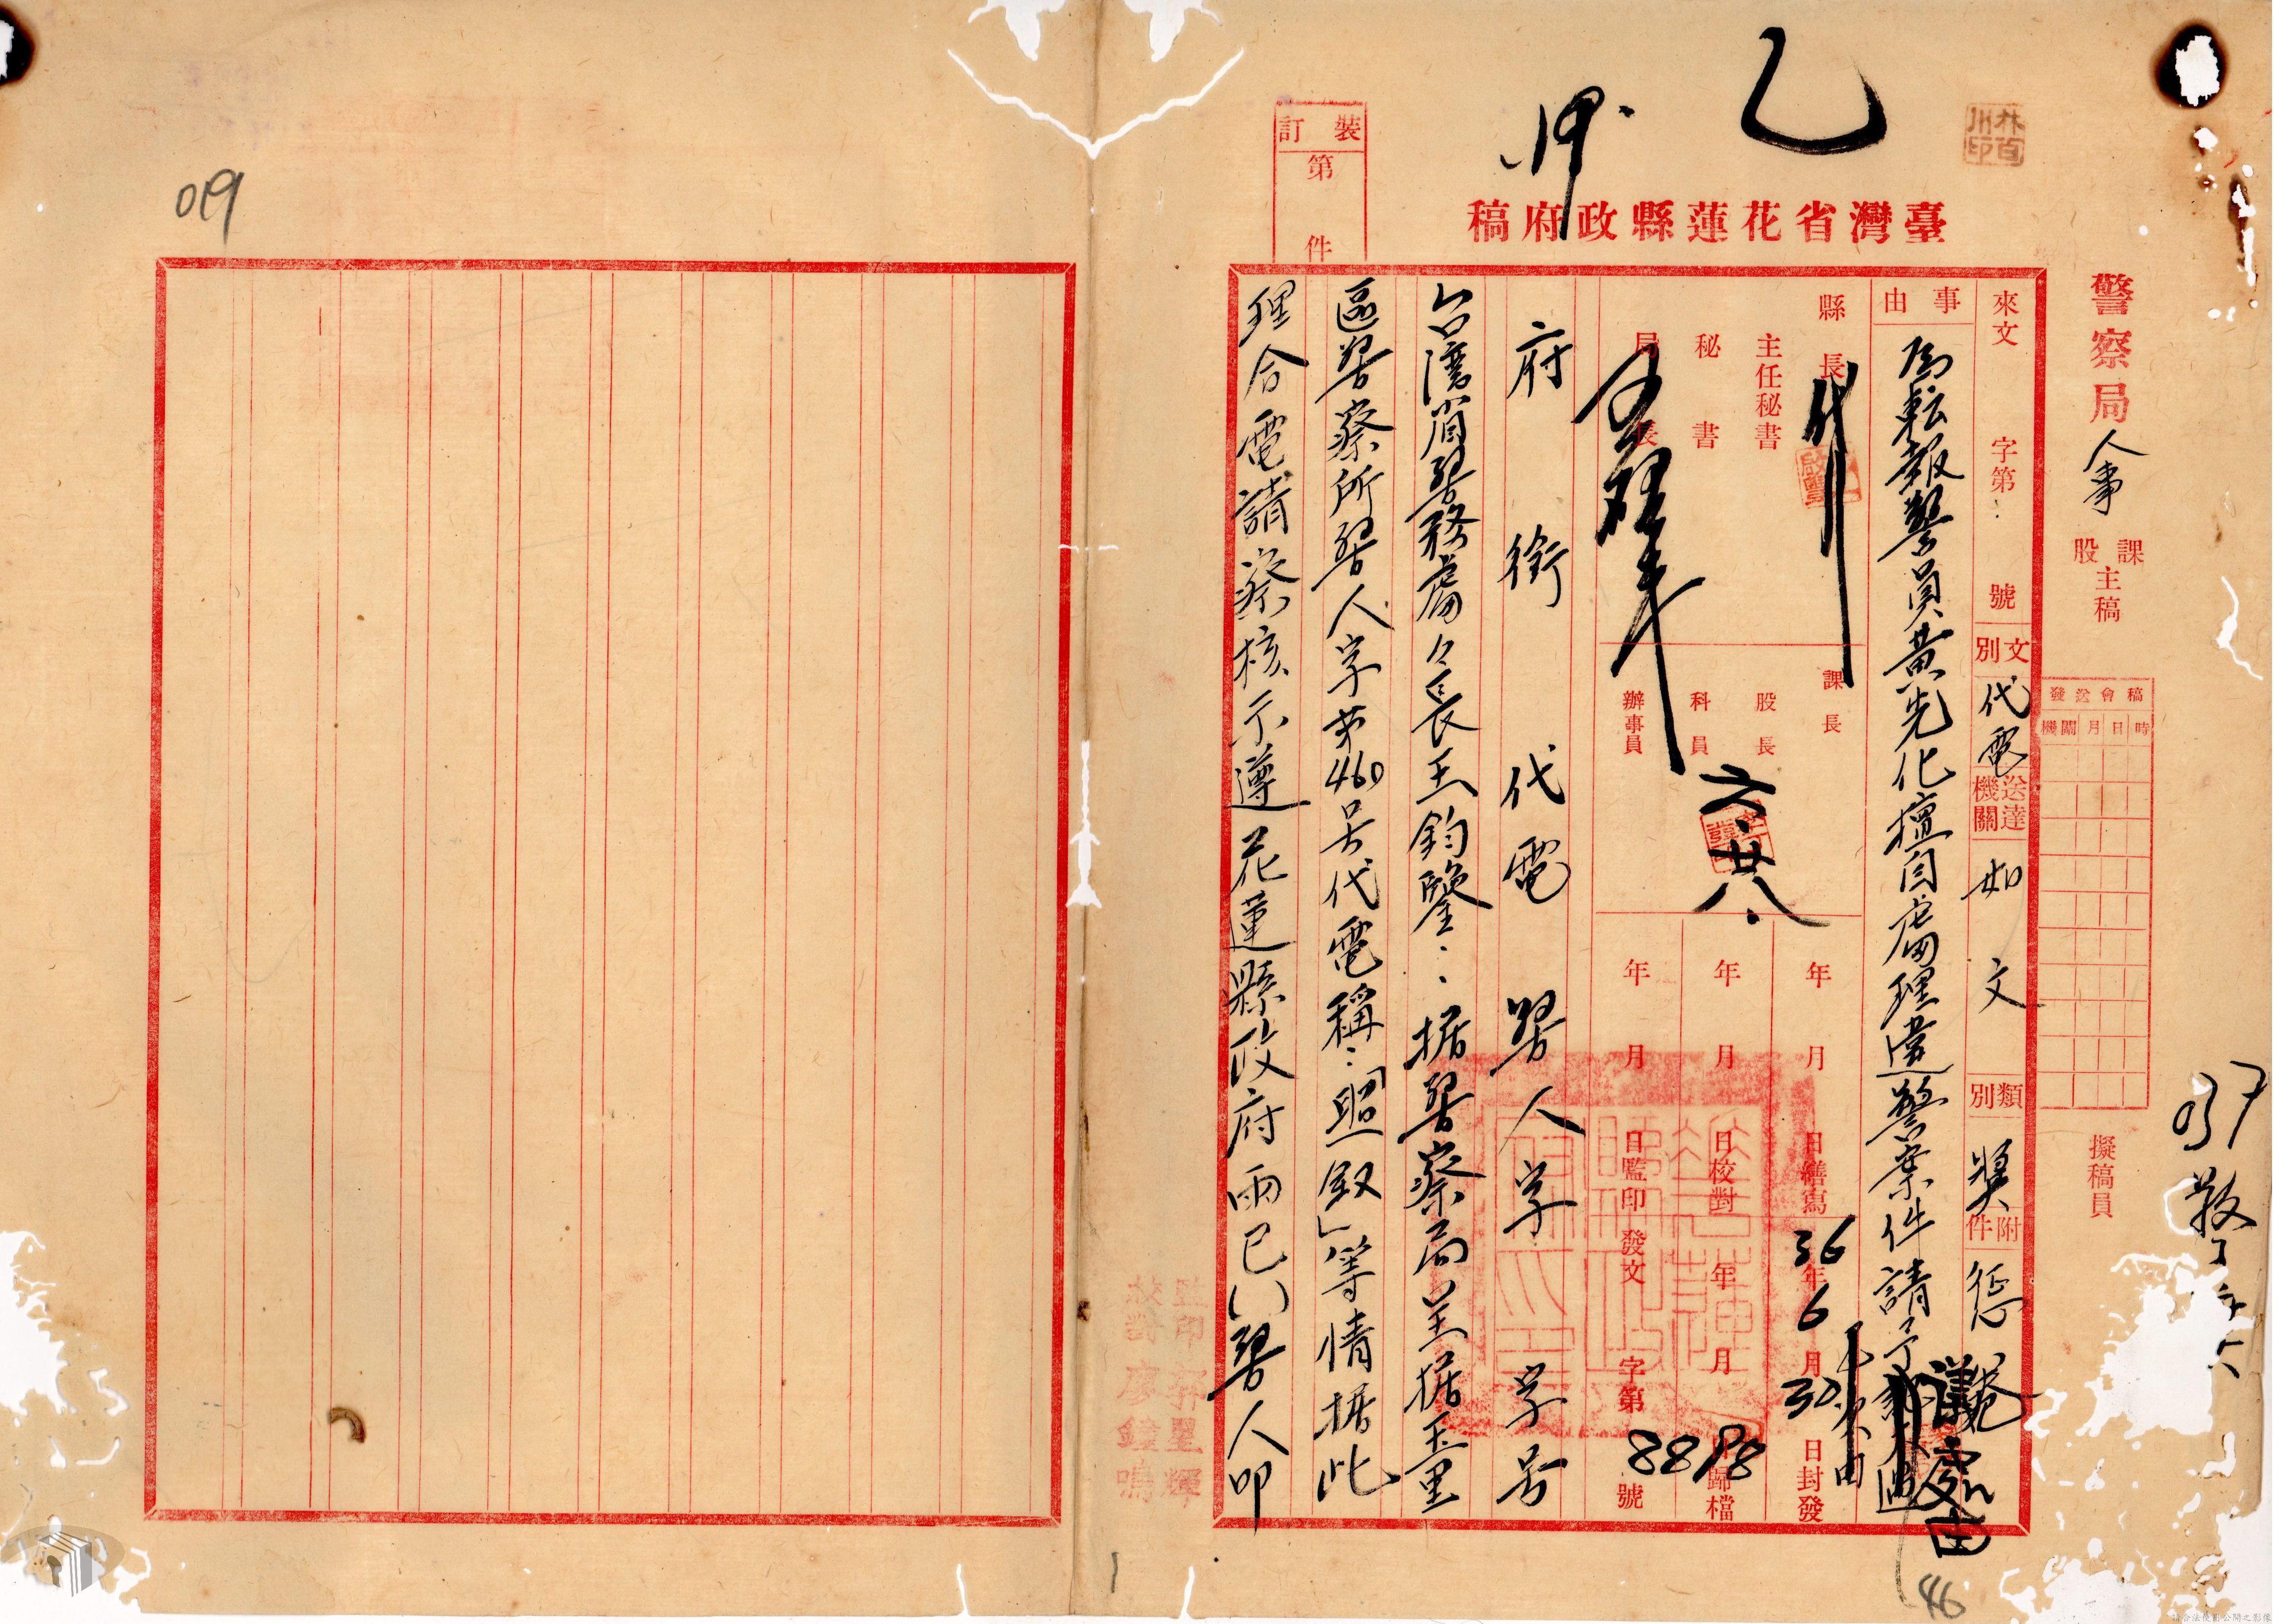 乙
臺灣省花蓮縣政府稿
裝訂
第 件
警察局 人事 課股主稿 擬稿員
稿會送發
時日月關機
來文 字第 號
文別 代電
送達機關 如文
類別 獎惩
附件
事由 為転報警員黃先化擅自處理違警案件請予議處由
縣長
主任秘書
秘書
局長
課長
股長
科員
辦事員
六.廿八.
年月日繕寫
年月日校對
年月日監印
36年6月30日封發
年月日歸檔
發文 字第8898號
府銜代電 警人字 字号
台灣省警務處々長王鈞鑒：据警察局呈据玉里
區警察所警人字第460号代電稱：「照叙」等情据此
理合電請察核示遵花蓮縣政府雨巳()警人叩
監印
校對 廖鐘鳴
林百川印
019
037
46